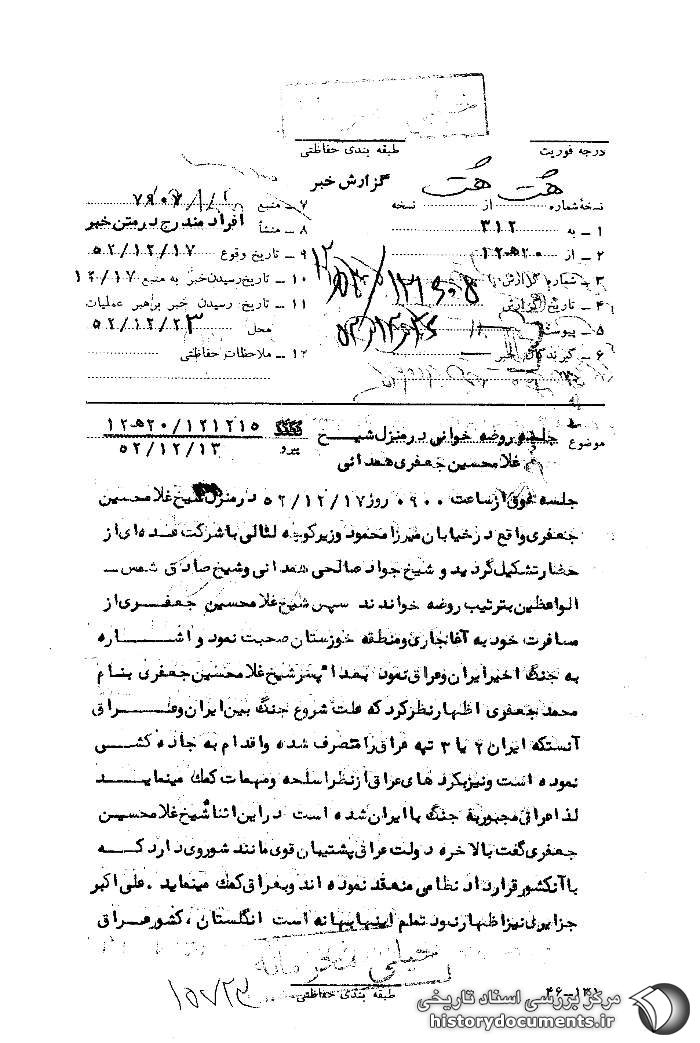 درجه فوریت
طبقه بندی حفاظتی
گزارش خبر
نسخه شماره از نسخه
۱ ـ به ۳۱۲
۲ ـ از ۲۰ ه ۱۲
۳ ـ شماره گزارش
۴ ـ تاریخ گزارش
۵ ـ پیوست
۶ ـ گیرندگان خبر
۷ ـ منبع
۸ ـ منشأ افراد مندرج در متن خبر
۹ ـ تاریخ وقوع ۵۲/۱۲/۱۷
۱۰ ـ تاریخ رسیدن خبر به منبع ۱۲/۱۷
۱۱ ـ تاریخ رسیدن خبر براهبر عملیات
محل ۵۲/۱۲/۲۳
۱۲ ـ ملاحظات حفاظتی
موضوع جلسه روضه خوانی در منزل شیخ
غلامحسین جعفری همدانی
پیرو ۱۲۱۲۱۵/۲۰ ه ۱۲
۵۲/۱۲/۱۳
جلسه فوق از ساعت ۰۹۰۰ روز ۵۲/۱۲/۱۷ در منزل شیخ غلامحسین
جعفری واقع در خیابان میرزا محمود وزیر کوچه لثالی با شرکت عده ای از
حضار تشکیل گردید و شیخ جواد صالحی همدانی و شیخ صادق شمس ـ
الواعظین بترتیب روضه خواندند سپس شیخ غلامحسین جعفری از
مسافرت خود به آغاجاری و منطقه خوزستان صحبت نمود و اشاره
به جنگ اخیر ایران و عراق نمود بعدا پسر شیخ غلامحسین جعفری بنام
محمد جعفری اظهار نظر کرد که علت شروع جنگ بین ایران و عراق
آنستکه ایران ۲ یا ۳ تپه عراق را متصرف شده و اقدام به جاده کشی
نموده است و نیز بکرد های عراق از نظر اسلحه و مهمات کمک مینماید
لذا عراق مجبور به جنگ با ایران شده است در این اثنا شیخ غلامحسین
جعفری گفت بالاخره دولت عراق پشتیبان قوی مانند شوروی دارد که
با آنکشور قرار داد نظامی منعقد نموده اند و بعراق کمک مینماید . علی اکبر
جزایری نیز اظهار نمود تمام اینها بهانه است انگلستان ، کشور عراق
خیلی محرمانه
طبقه بندی حفاظتی
۱۵۷۲۳
مرکز بررسی اسناد تاریخی
historydocuments.ir